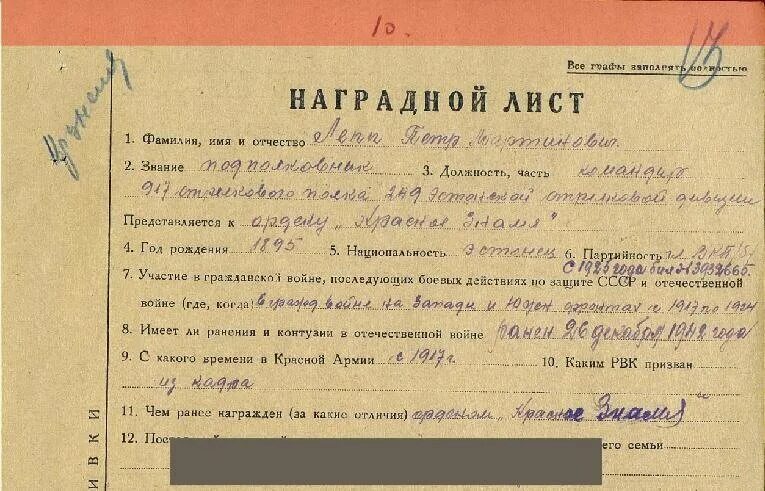 10.
Все графы заполнять полностью
НАГРАДНОЙ ЛИСТ
1. Фамилия, имя и отчество Лепп Петр Мартинович
2. Звание подполковник 3. Должность, часть командир
917 стрелкового полка 249 Эстонской стрелковой дивизии
Представляется к ордену „Красное Знамя"
4. Год рождения 1895 5. Национальность эстонец 6. Партийность чл ВКП/б/
с 1925 года бил № 3932665.
7. Участие в гражданской войне, последующих боевых действиях по защите СССР и отечественной
войне (где, когда) в гражд войне на Западн и Южн фронтах с 1917 по 1924
8. Имеет ли ранения и контузии в отечественной войне ранен 26 декабря 1942 года
9. С какого времени в Красной Армии с 1917 г 10. Каким РВК призван
из кадра
11. Чем ранее награжден (за какие отличия) орденом „Красное Знамя"
12. его семьи
ИВКИ